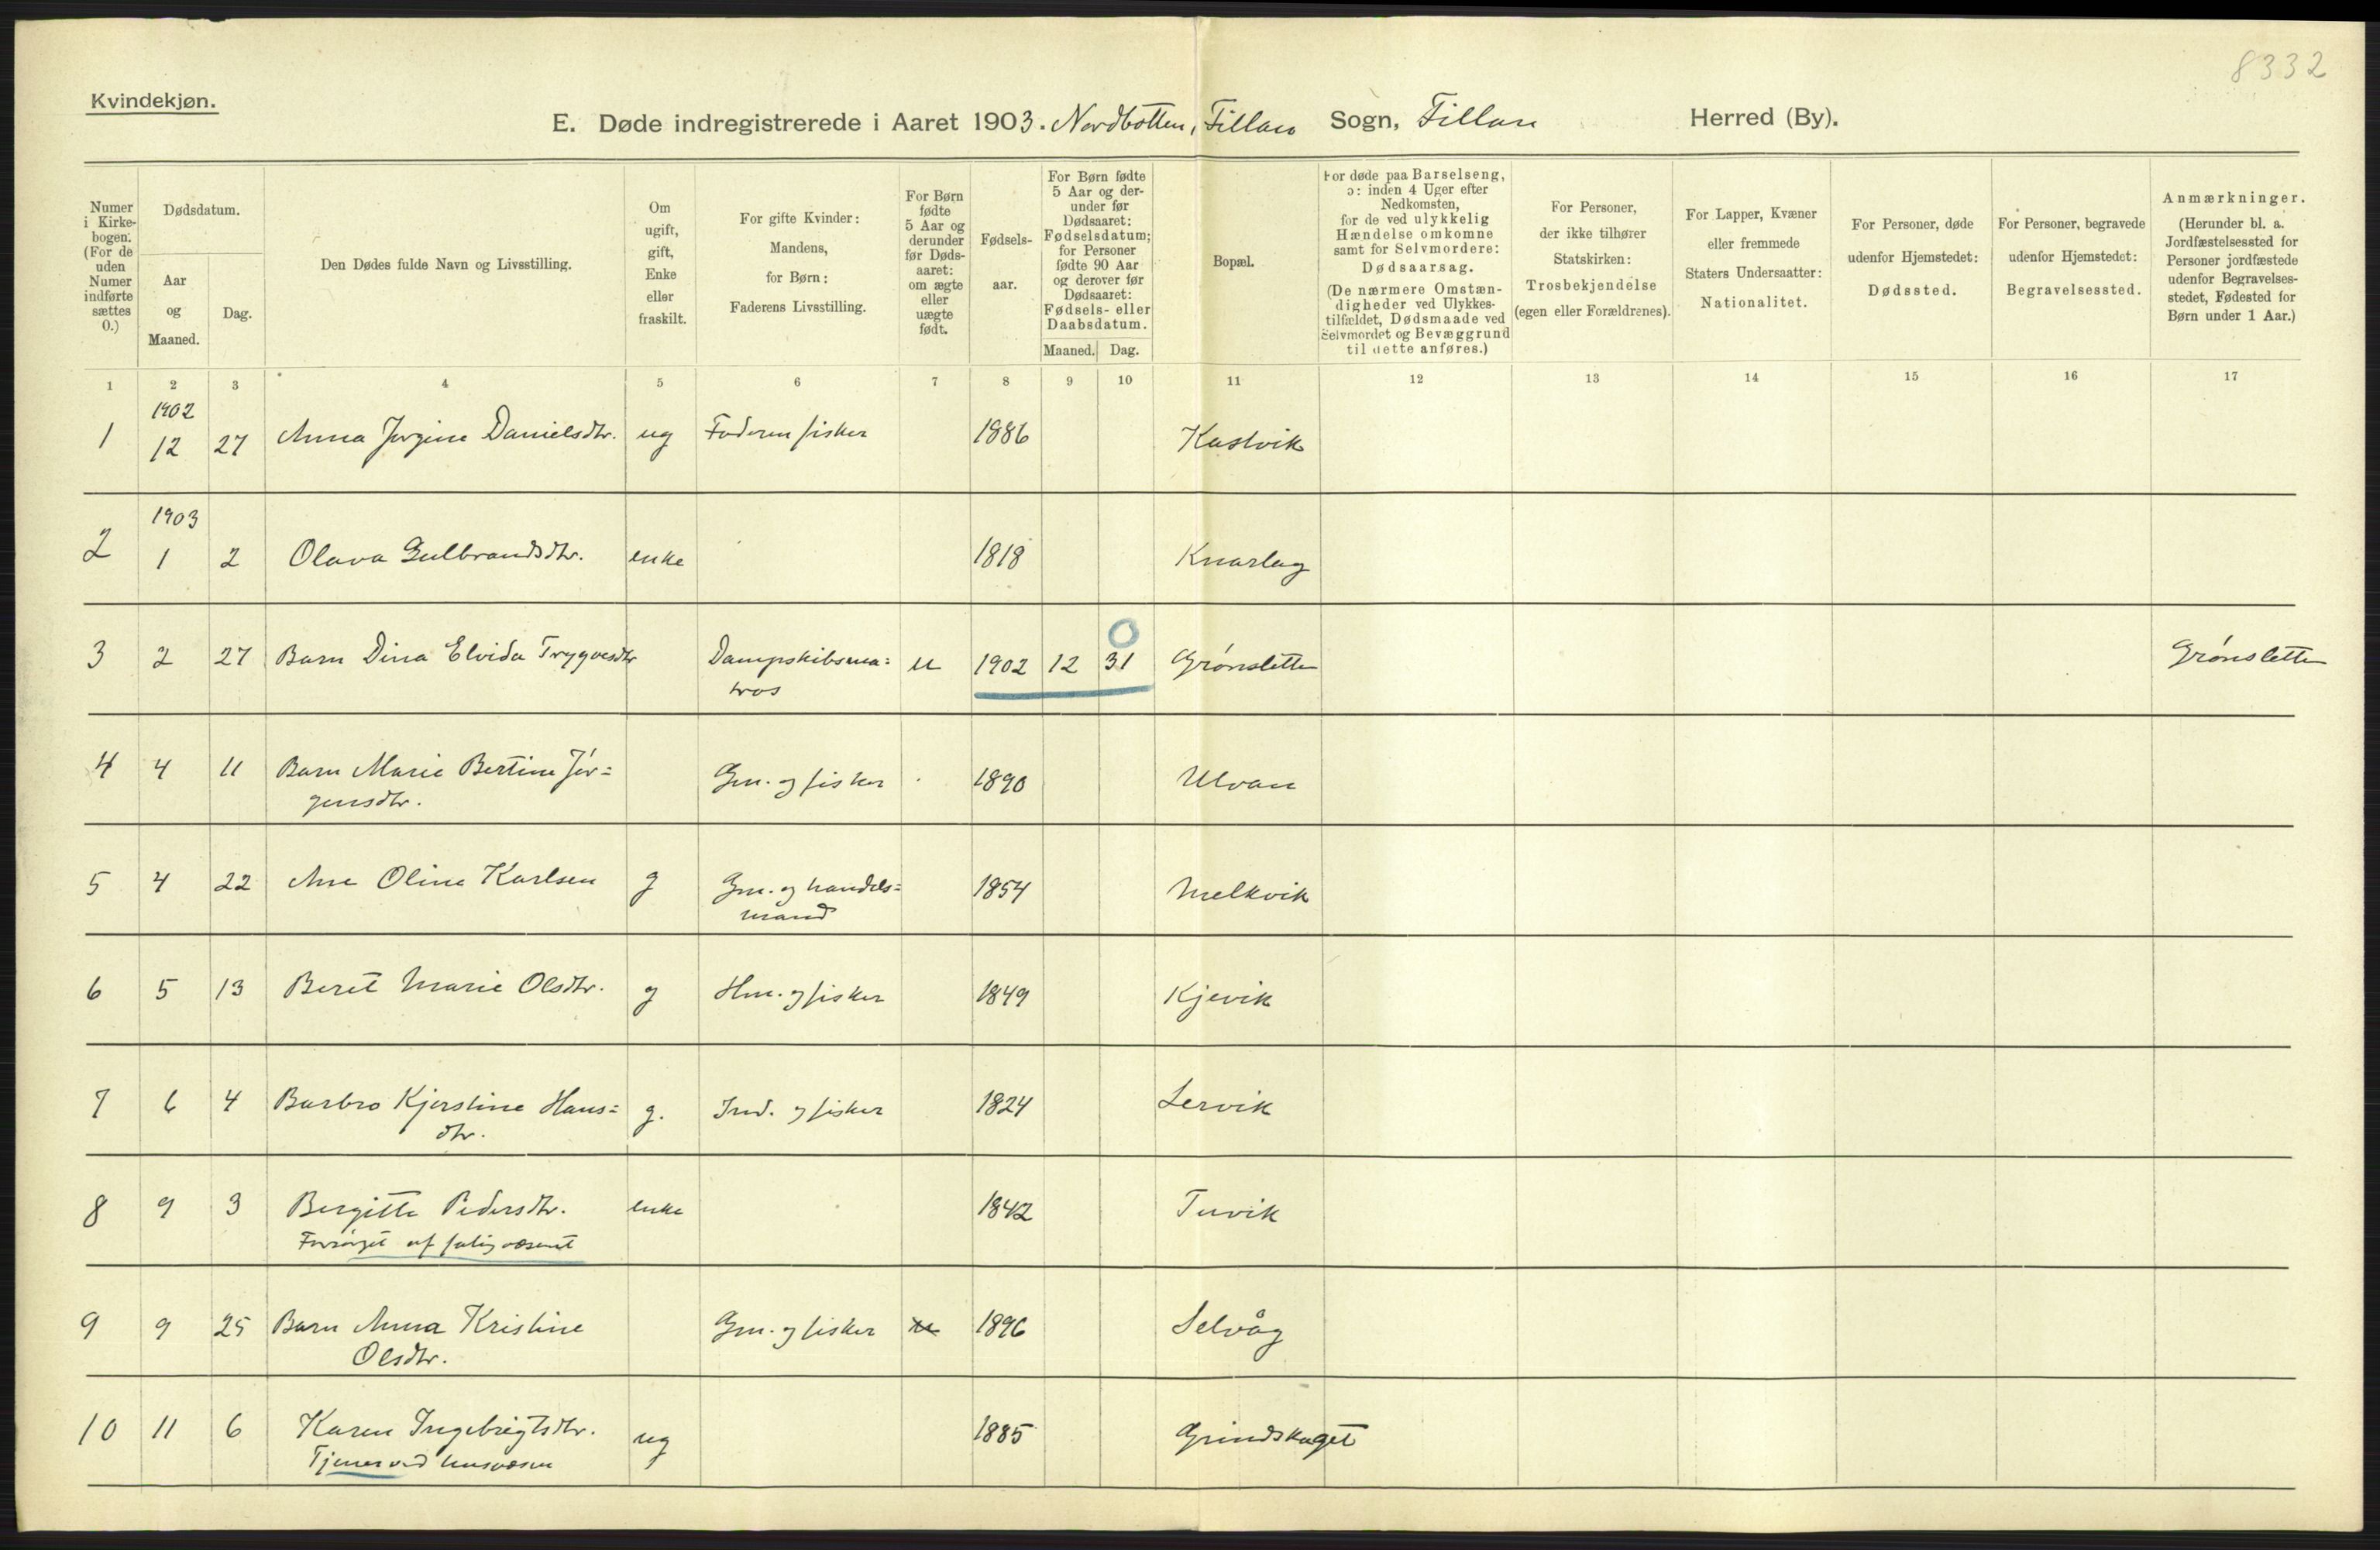 8332
Kvindekjøn.
E. Døde indregistrerede i Aaret 1903. Nordbotten, Fillan Sogn, Fillan Herred (By).
Numer i Kirkebogen. (For de uden Numer indførte sættes 0.)
Dødsdatum.
Aar og Maaned.
Dag.
Den Dødes fulde Navn og Livsstilling.
Om ugift, gift, Enke eller fraskilt.
For gifte Kvinder: Mandens, for Børn: Faderens Livsstilling.
For Børn fødte 5 Aar og derunder før Dødsaaret: om ægte eller uægte født.
Fødselsaar.
For Børn fødte 5 Aar og derunder før Dødsaaret: Fødselsdatum; for Personer fødte 90 Aar og derover før Dødsaaret: Fødsels- eller Daabsdatum.
Maaned. Dag.
Bopæl.
For døde paa Barselseng, ɔ: inden 4 Uger efter Nedkomsten, for de ved ulykkelig Hændelse omkomne samt for Selvmordere: Dødsaarsag. (De nærmere Omstændigheder ved Ulykkestilfældet, Dødsmaade ved Selvmordet og Bevæggrund til dette anføres.)
For Personer, der ikke tilhører Statskirken: Trosbekjendelse (egen eller Forældrenes).
For Lapper, Kvæner eller fremmede Staters Undersaatter: Nationalitet.
For Personer, døde udenfor Hjemstedet: Dødssted.
For Personer, begravede udenfor Hjemstedet: Begravelsessted.
Anmærkninger. (Herunder bl. a. Jordfæstelsessted for Personer jordfæstede udenfor Begravelsesstedet, Fødested for Børn under 1 Aar.)
1 2 3 4 5 6 7 8 9 10 11 12 13 14 15 16 17
1902
1 12 27 Anna Jørgine Danielsdtr. ug Faderen fisker 1886 Kastvik
1903
2 1 2 Olava Gulbrandsdtr. enke 1818 Knarlag
3 2 27 Barn Dina Elvida Trygvesdtr Dampskibsma= u 1902 12 31 Grønsletten Grønsletten
tros
4 4 11 Barn Marie Bertine Jør= Gm. og fisker 1890 Ulvan
gensdtr.
5 4 22 Ane Oline Karlsen g Gm. og handels= 1854 Melkvik
mand
6 5 13 Beret Marie Olsdtr. g Hm. og fisker 1849 Kjevik
7 6 4 Barbro Kjerstine Hans= g. Ind. og fisker 1824 Lervik
dtr.
8 9 3 Bergitte Pedersdtr. enke 1842 Tuvik
Forsørget af fatigvæsenet
9 9 25 Barn Anna Kristine Gm. og fisker 1896 Selvåg
Olsdtr.
10 11 6 Karen Ingebrigtsdtr. ug 1885 Grindskaget
Tjener ved husvæsen